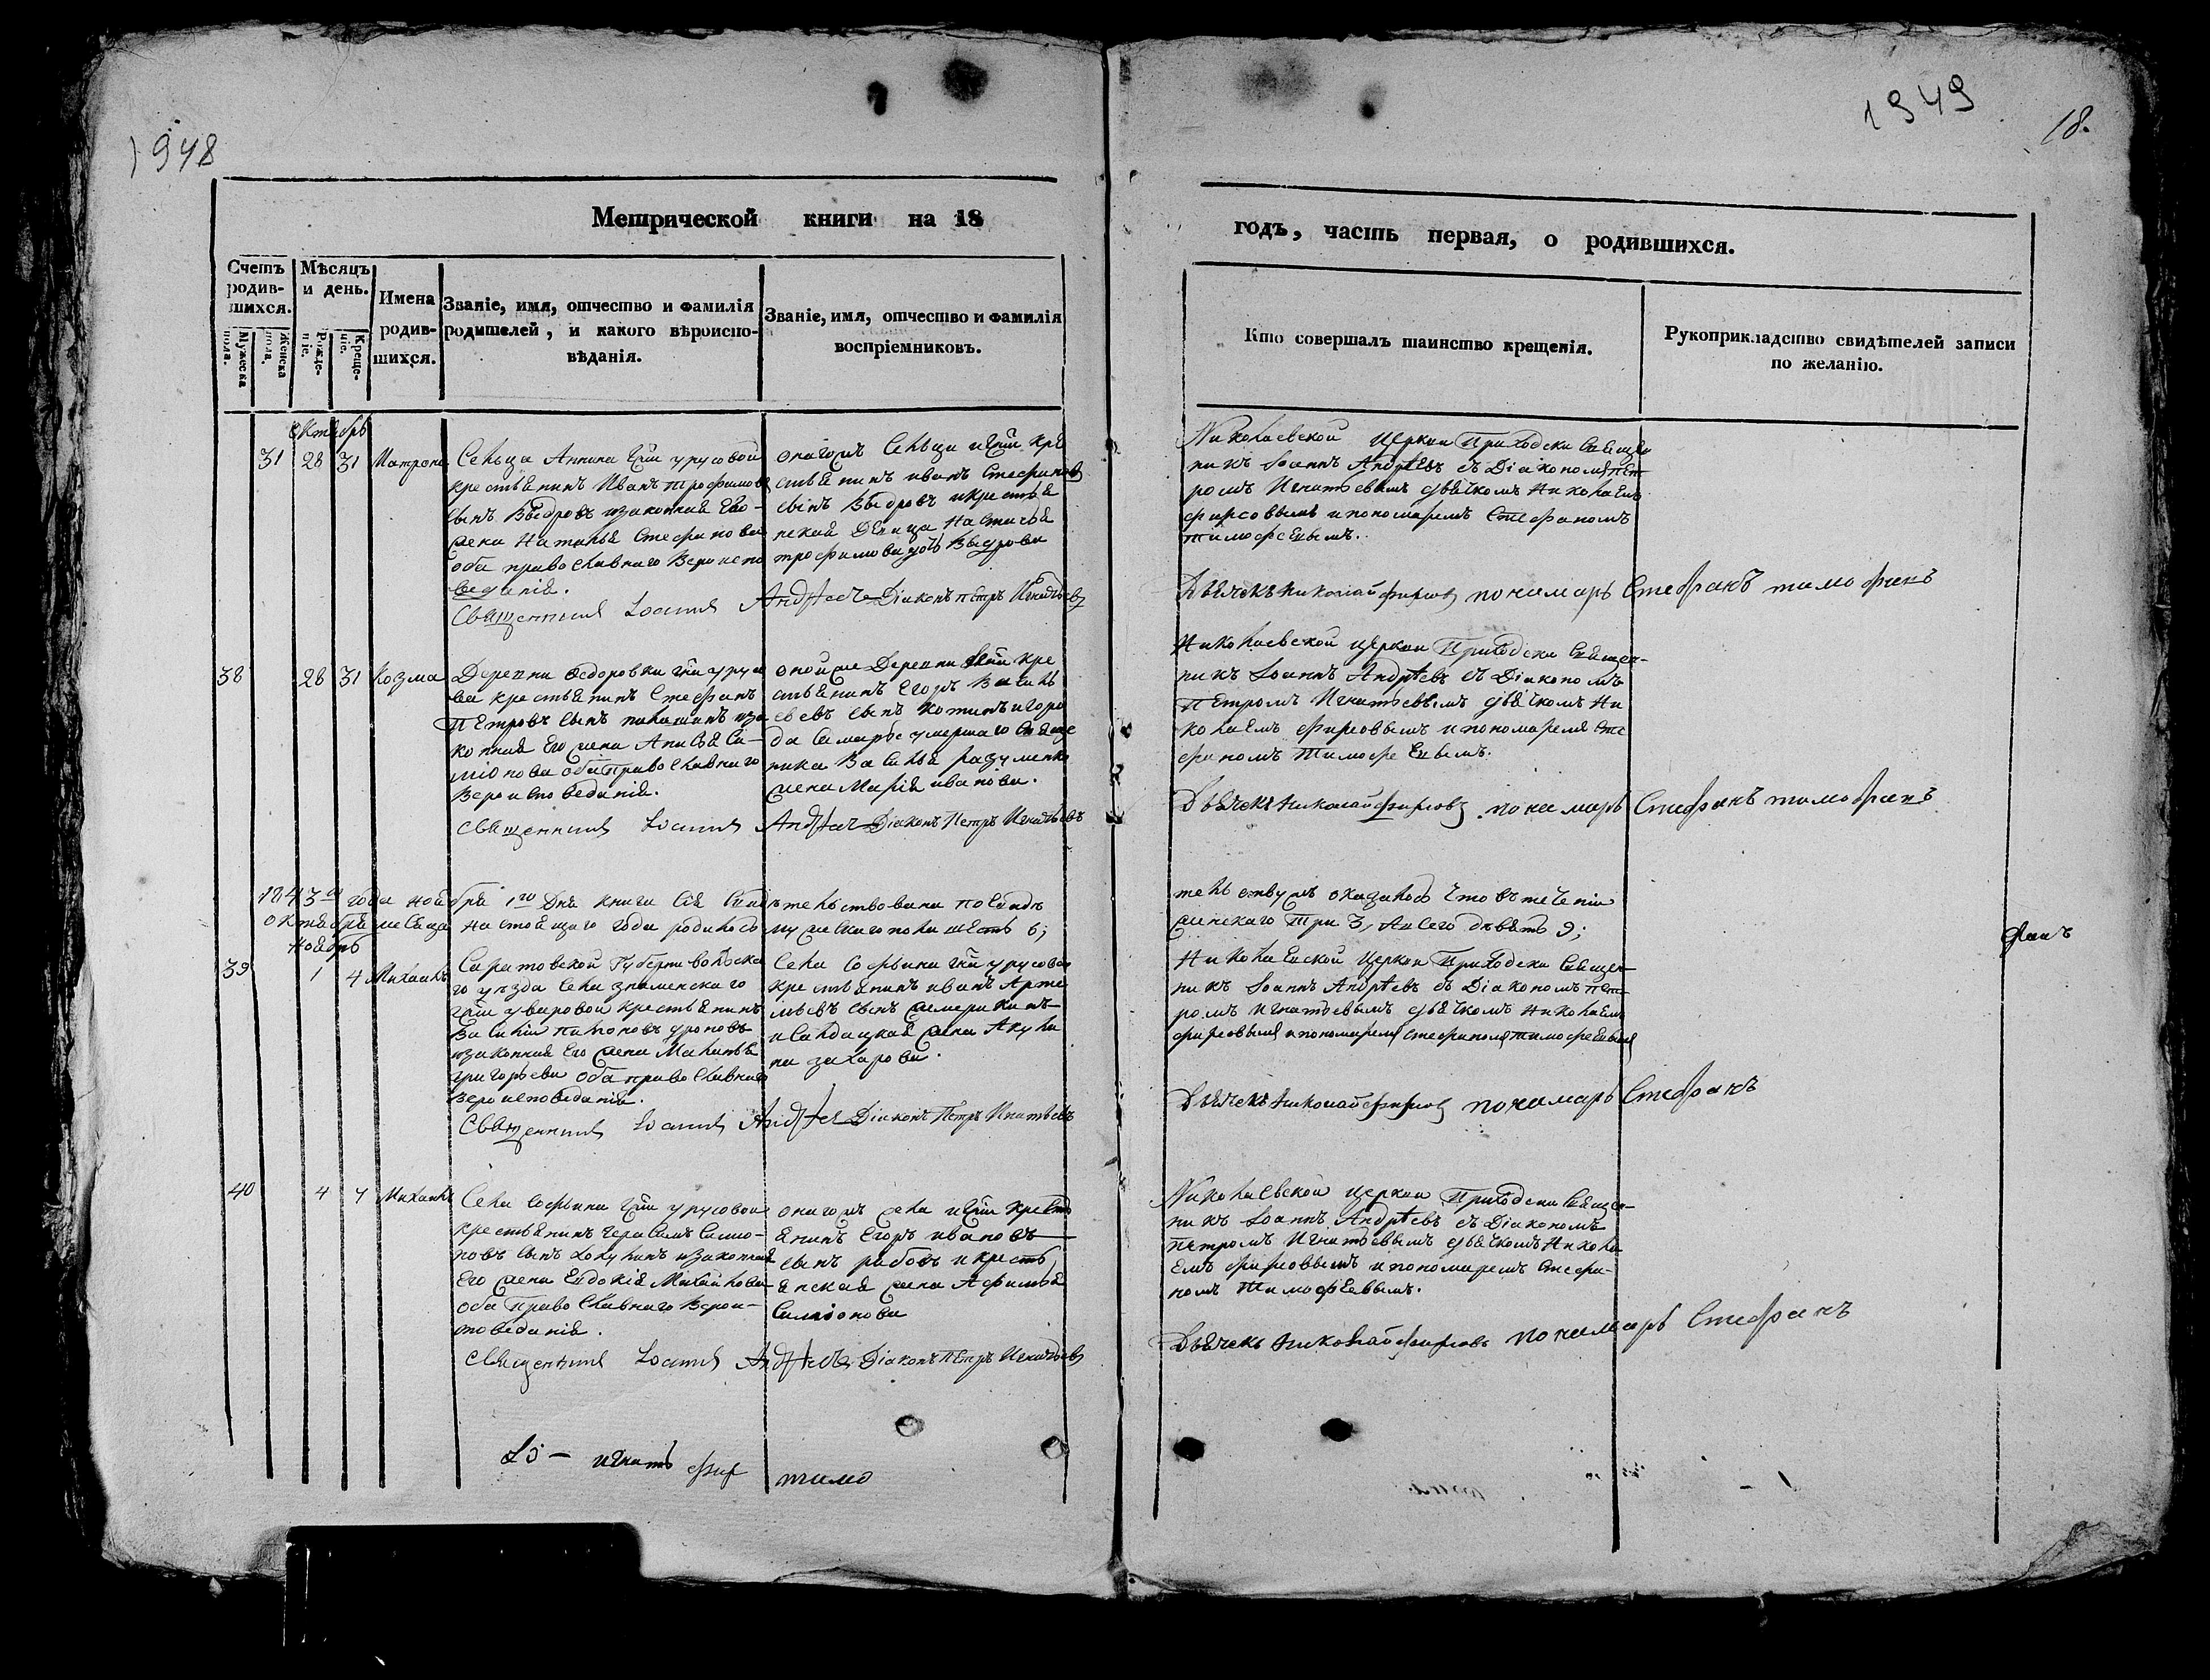 1948
1949
18.
Метрической книги на 18
годъ, часть первая, о родившихся.
Счетъ родив-шихся.
Мужеска пола.
Женска пола.
Мѣсяцъ и день.
Рожде-ніе.
Креще-ніе.
Имена родив-шихся.
Званіе, имя, отчество и фамилія
родителей, и какого вѣроиспо-
вѣданія.
Званіе, имя, отчество и фамилія
воспріемниковъ.
Кто совершалъ таинство крещенія.
Рукоприкладство свидѣтелей записи
по желанію.
Октябрь
31 28 31 Матрона
Сельца Аннина Гжи урусовой
крестьянинъ Иванъ трофимовъ
сынъ Выдровъ изаконная Его
жена Наталья Стефанова
оба православнаго Вероиспо
веданія.
онагожъ Сельца Гжи кре
стьянинъ иванъ Стефановъ
сынъ Выдровъ икрестья
нская Девица Настасья
трофимова дочь Выдрова
Священникъ Іоаннъ Андреевъ Діаконъ петръ Игнатьевъ
Николаевской церкви Приходски Священ
никъ Іоаннъ Андреевъ съ Діакономъ пет
ромъ Игнатьевымъ дьячкомъ Николаемъ
фирсовымъ ипономаремъ Стефаномъ
тимофеевымъ.
Дьячекъ николай фирсовъ пономарь Стефанъ тимофеевъ
38 28 31 Козма
Деревни Федоровки Гжи урусо
вой крестьянинъ Стефанъ
Петровъ сынъ изa
конная Его жена Анисья Си-
міонова оба Православнаго
Вероисповеданія.
оной же Деревни Гжи кре
стьянинъ Егоръ Василь
евъ сынъ Котинъ игоро
да Самары умершаго Священ
ника Василья
жена Марія иванова.
Священникъ Іоаннъ Андреевъ Діаконъ Петръ Игнатьевъ
Николаевской церкви Приходски Священ-
никъ Іоаннъ Андреевъ съ Діакономъ
Петромъ Игнатьевымъ дьячкомъ Ни
колаемъ фирсовымъ ипономаремъ Сте
фаномъ Тимофеевымъ.
Дьячекъ николай фирсовъ пономарь Стефанъ тимофеевъ
1843го года ноября 1го Дня книга сія Свидѣтельствована посвидѣ
тельствумъ оказалось что въ теченіи
октября месяца настоящаго года родилось мужескаго пола шесть 6;
женскаго три 3, Авсего девять 9;
ноябрь
39 1 4 Михаилъ
Саратовской Губерни вольска
го уезда села знаменскаго
Гжи уваровой крестьянинъ
Василій
изаконная Его жена Маланья
григорьева оба православнаго
Вероисповеданія.
Села Софьина Гжи урусовой
крестьянинъ иванъ Арте
мьевъ сынъ
исалдацкая жена Акули
на захарова.
Священникъ Іоаннъ Андреевъ Діаконъ Петръ Игнатьевъ
Николаевской церкви Приходски Священ-
никъ Іоаннъ Андреевъ съ Діакономъ пет
ромъ игнатьевымъ дьячкомъ николаемъ
фирсовымъ ипономаремъ стефаномъ тимофеевымъ
Дьячекъ николай фирсовъ пономарь Стефанъ
40 4 7 Михаилъ
Села Софьина Гжи урусовой
крестьянинъ Герасимъ Симо-
новъ сынъ Локунинъ изаконная
Его жена Евдокія Михайлова
оба Православнаго Верои-
споведанія.
онагожъ села Гжи кресть
янинъ Егоръ ивановъ
сынъ рабовъ икресть
янская жена Афимья
Симіонова
Священникъ Іоаннъ Андреевъ Діаконъ Петръ Игнатьевъ
Николаевской церкви Приходски Священ-
никъ Іоаннъ Андреевъ съ Діакономъ
Петромъ Игнатьевымъ дьячкомъ Никола
емъ фирсовымъ ипономаремъ Стефа-
номъ Тимофеевымъ.
Дьячекъ николай фирсовъ пономарь Стефанъ
игнать фир тимо